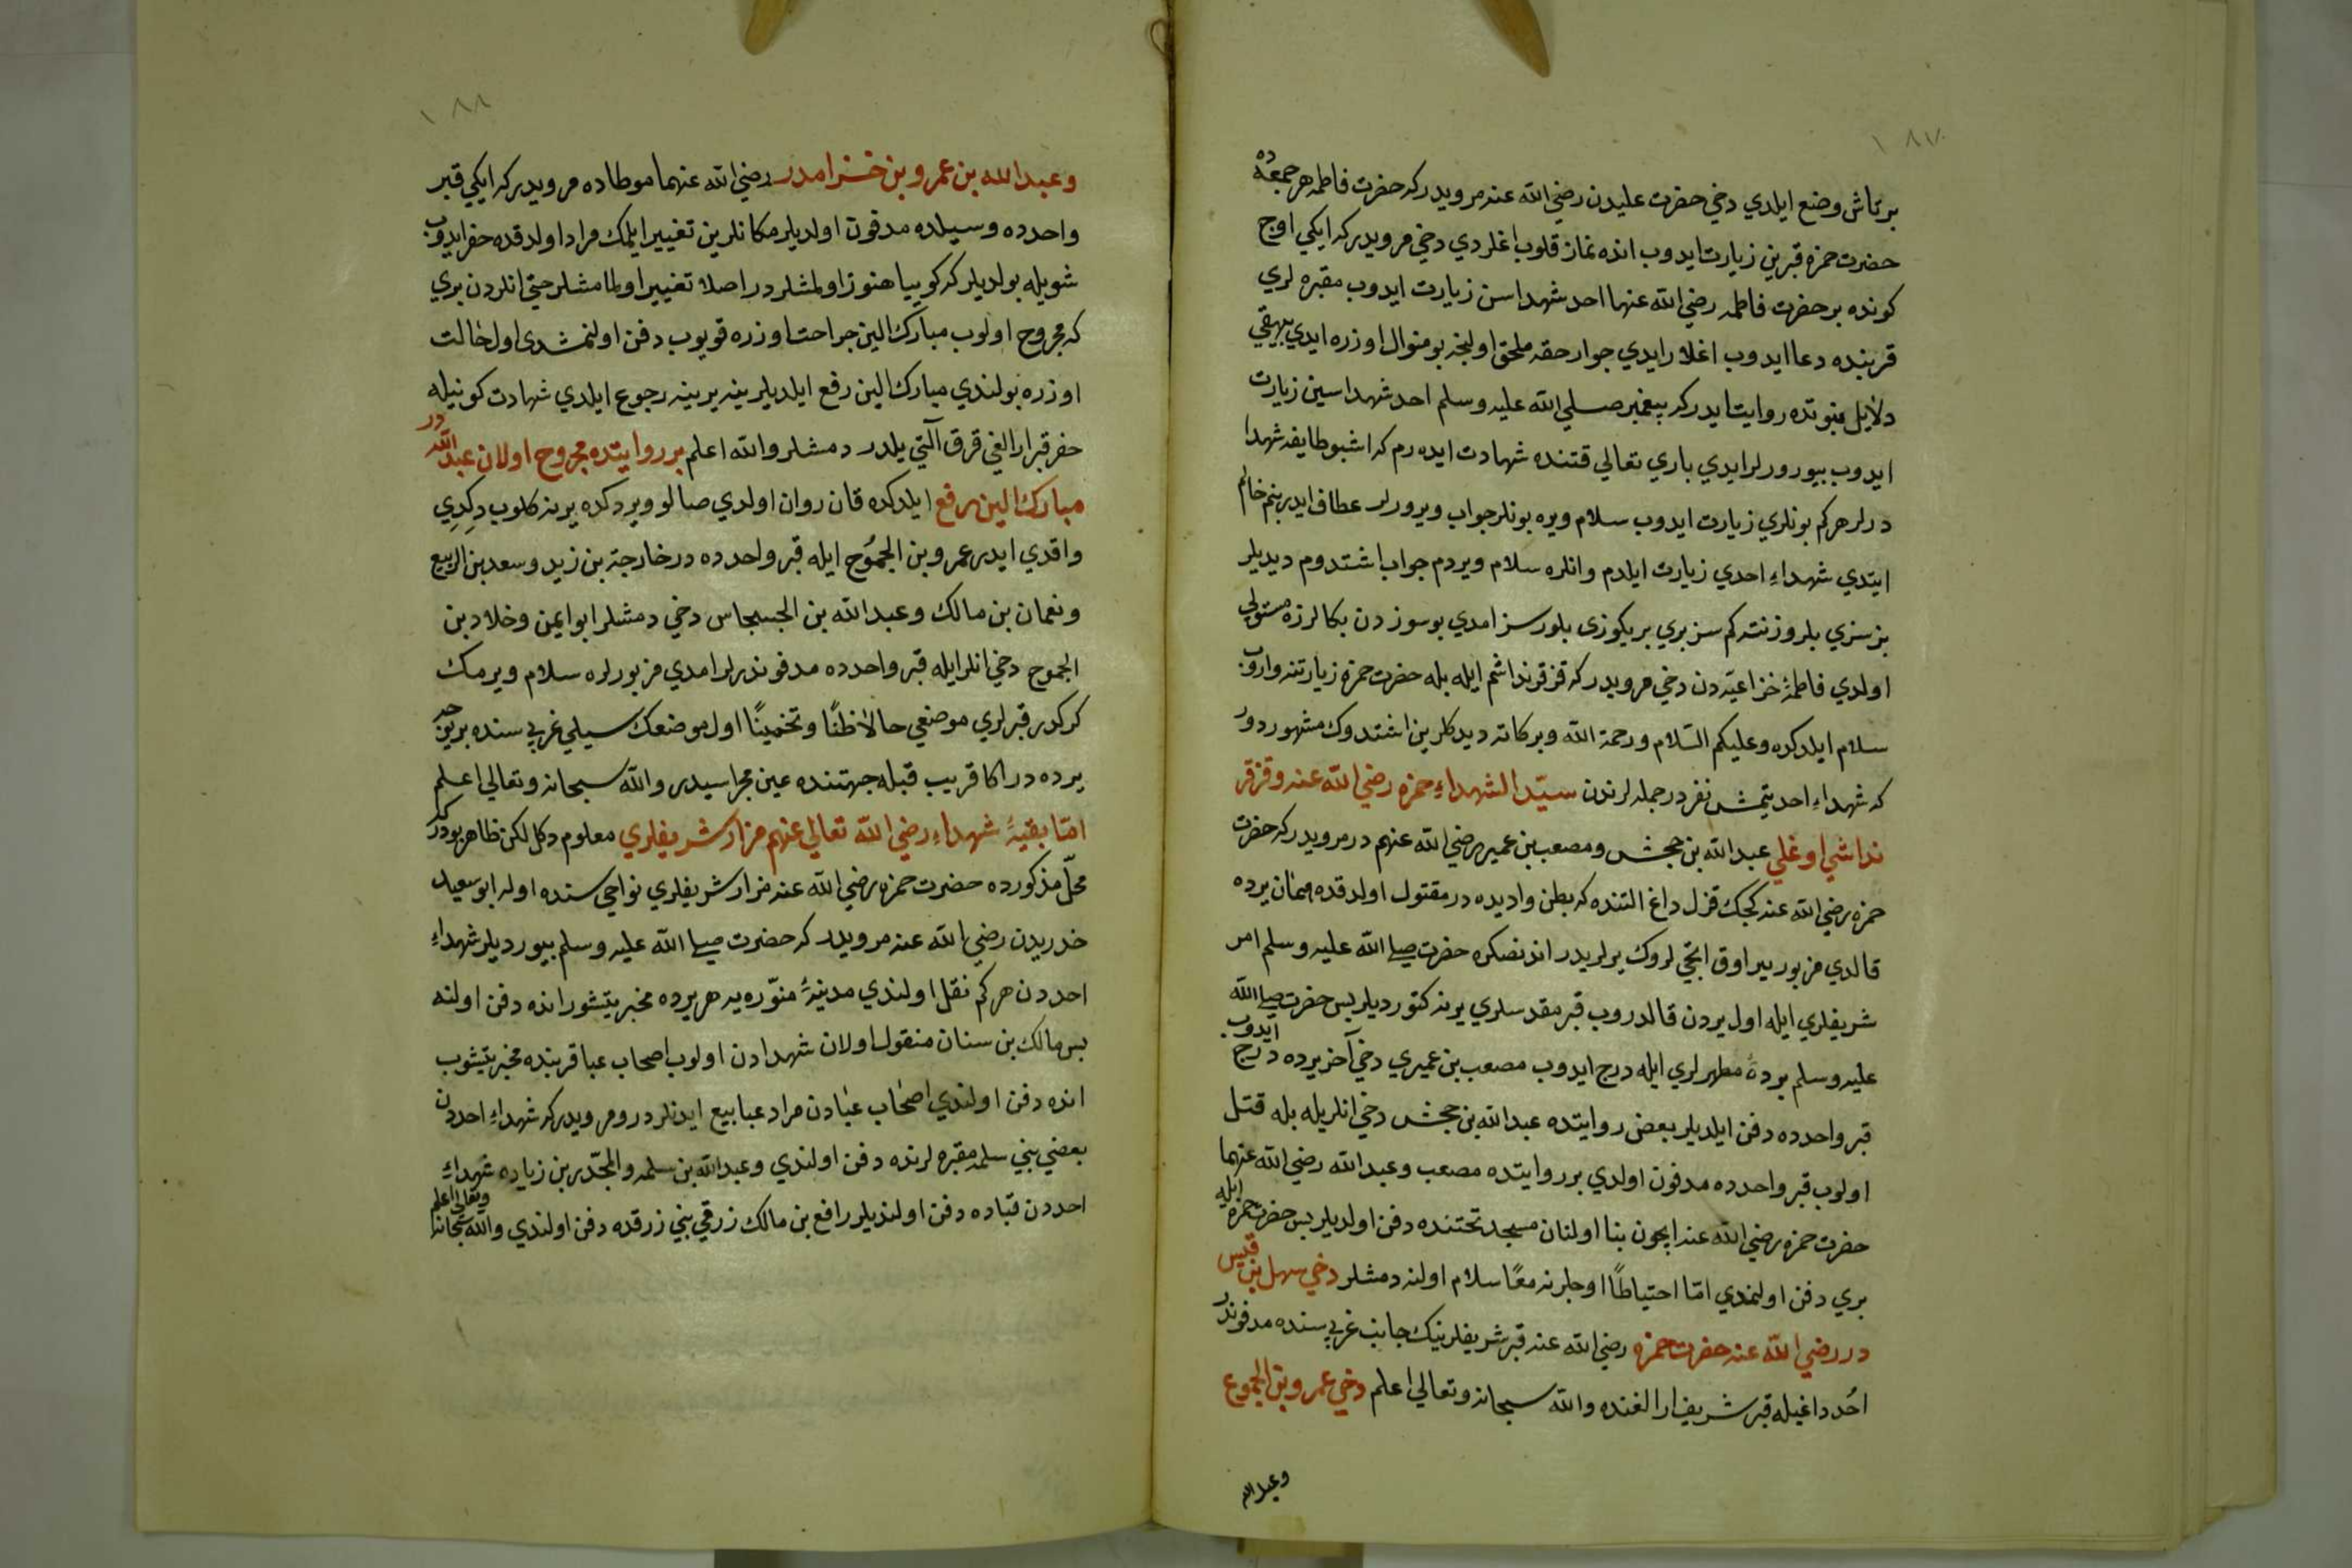 ١٨٧
بر تاش وضع ايلدي دخي حضرت عليدن رضي الله عنه مرويدر كه حضرت فاطمه هر جمعه ده
حضرت حمزه قبرين زيارت ايدوب انده نماز قلوب اغلردي دخي مرويدر كه ايكي اوچ
كونده بر حضرت فاطمه رضي الله عنها احد شهداسن زيارت ايدوب مقبره لري
قربنده دعا ايدوب اغلارايدي جوار حقه ملحق اولنجه بو منوال اوزره ايدي بيهقي
دلايل نبوتده روايت ايدركه پيغمبر صلي الله عليه وسلم احد شهداسين زيارت
ايدوب بيوررلرايدي باري تعالي قتنده شهادت ايده رم كه اشبو طايفه شهدا
درلر هر كم بونلري زيارت ايدوب سلام ويره بونلر جواب ويرورلر عطاف ايدر بنم خالم
ايتدي شهداء احدي زيارت ايلدم وانلره سلام ويردم جواب اشتدوم ديديلر
بز سزي بلروز نته كم سز بري بريكوزى بلورسز امدي بو سوزدن بكا لرزه مستولي
اولدي فاطمهٔ خزاعيّه دن دخي مرويدر كه قز قرنداشم ايله بله حضرت حمزه زيارتنه واروب
سلام ايلدكده وعليكم السّلام ورحمة الله وبركاته ديدكلرين اشتدوك مشهور دور
كه شهداء احد يتمش نفر در جمله لرندن سيّد الشهداء حمزه رضي الله عنه وقز قر
نداشي اوغلي عبد الله بن جحش ومصعب بن عمير رضي الله عنهم در مرويدر كه حضرت
حمزه رضي الله عنه كجك قزل داغ التنده كه بطن واديده در مقتول اولدقده همان يرده
قالدي مزبور ير اوق اتجي لروك يرلريدر اندنصكره حضرت صلي الله عليه وسلم امر
شريفلري ايله اول يردن قالدروب قبر مقدسلري يرنه كتورديلر بس حضرت صلي الله
عليه وسلم بردهٔ مطهرلري ايله درج ايدوب مصعب بن عميري دخي آخر يرده درج ايدوب
قبر واحدده دفن ايلديلر بعض روايتده عبد الله بن جحش دخي انلريله بله قتل
اولوب قبر واحدده مدفون اولدي بر روايتده مصعب وعبد الله رضي الله عنهما
حضرت حمزه رضي الله عنه ايچون بنا اولنان مسجد تحتنده دفن اولديلر بس حضرت حمزه ايله
بري دفن اولنمدي امّا احتياطًا اوچلرنه معًا سلام اولنه دمشلر دخي سهل بن قيس
در رضي الله عنه حضرت حمزه رضي الله عنه قبر شريفلرينك جانب غربيسنده مدفوندر
اُحد داغيله قبر شريف ارالغنده والله سبحانه وتعالي اعلم دخي عمرو بن الجموع
وعبد الله
١٨٨
وعبد الله بن عمرو بن خزامدر رضي الله عنهما موطاده مرويدر كه ايكي قبر
واحدده وسيلده مدفون اولديلر مكانلرين تغيير ايلمك مراد اولدقده حفر ايدوب
شويله بولديلر كه كوييا هنوز اولمشلردر اصلا تغيير اولمامشلر حتي انلردن بري
كه مجروح اولوب مبارك الين جراحت اوزره قويوب دفن اولنمشدى اول حالت
اوزره بولندي مبارك الين رفع ايلديلر ينه يرينه رجوع ايلدي شهادت كونيله
حفر قبر ارالغي قرق التي يلدر دمشلر والله اعلم بر روايتده مجروح اولان عبد الله در
مبارك الين رفع ايلدكده قان روان اولدي صالو ويردكده يرنه كلوب دكدي
واقدي ايدر عمرو بن الجموُح ايله قبر واحدده در خارجة بن زيد وسعد بن الربيع
ونعمان بن مالك وعبد الله بن الحسحاس دخي دمشلر ابو ايمن وخلاد بن
الجموح دخي انلرايله قبر واحدده مدفوندرلر امدي مزبورلره سلام ويرمك
كركدر قبرلري موضعي حالا ظنًا وتخمينًا اول موضعك سيلي غربيسنده بر يوجه
يرده در اكا قريب قبله جهتنده عين مجراسيدر والله سبحانه وتعالي اعلم
امّا بقيهٔ شهداء رضي الله تعالي عنهم مزار شريفلري معلوم دكل لكن ظاهر بودر كه
محلّ مذكورده حضرت حمزه رضي الله عنه مزار شريفلري نواحيسنده اوله ابو سعيد
خدريدن رضي الله عنه مرويدر كه حضرت صلي الله عليه وسلم بيورديلر شهداء
احددن هر كم نقل اولندي مدينهٔ منوّره يه هر يرده مخبر يتيشور انده دفن اولنه
بس مالك بن سنان منقول اولان شهدادن اولوب اصحاب عبا قربنده مخبر يتيشوب
انده دفن اولندي اصحاب عبادن مراد عبا بيع ايدنلردر ومرويدر كه شهداء احددن
بعضي بني سلمه مقبره لرنده دفن اولندي وعبد الله بن سلمه والمجدّر بن زياده شهداء
احددن قباده دفن اولنديلر رافع بن مالك زرقي بني زرقده دفن اولندي والله سبحانه وتعالي اعلم